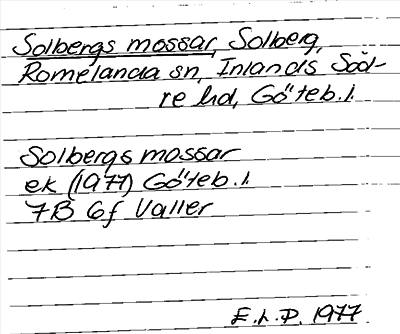 Solbergs mossar, Solberg,
Romelanda sn, Inlands Söd-
re hd, Göteb. l.
Solbergs mossar
ek (1977) Göteb. l.
7B 6f Valler
E.L.P. 1977